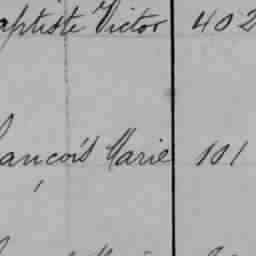 aptiste Victor 402
ançois Marie 101